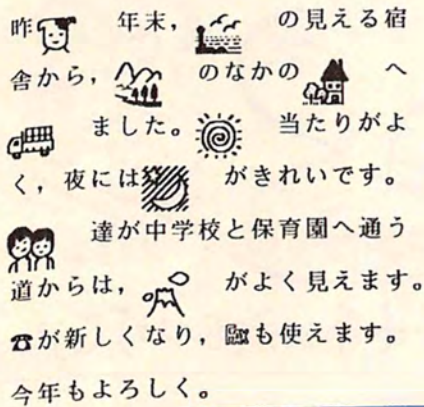 昨 年末, の見える宿
舎から, のなかの へ
ました。 当たりがよ
く,夜には がきれいです。
達が中学校と保育園へ通う
道からは, がよく見えます。
☎が新しくなり, も使えます。
今年もよろしく。